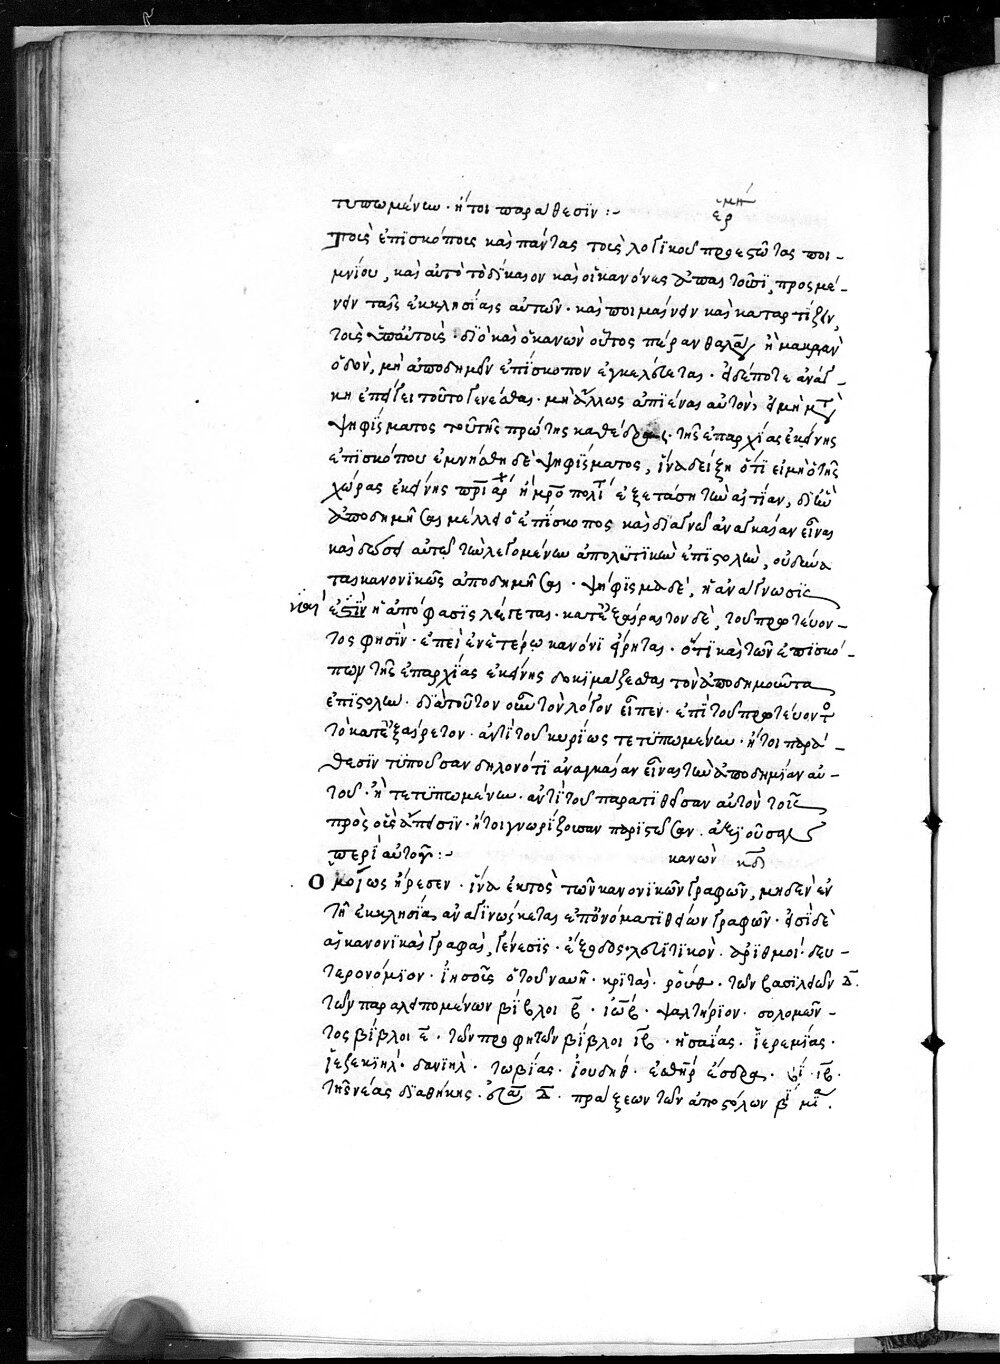 τυπωμένων · ἤτοι παράθεσιν :~ ἑρμή
Τοῖς ἐπισκόποις καὶ πάντας τοὺς λογικοῦ προεστῶτας ποι-
μνίου, καὶ αὐτὸ τὸ δίκαιον καὶ οἱ κανόνες ἅπαντες, προσμέ-
νειν ταῖς ἐκκλησίαις αὐτῶν · καὶ ποιμαίνειν καὶ καταρτίζειν
τοὺς ὑπ' αὐτούς · διὸ καὶ ὁ κανὼν οὗτος πέραν θαλάσσης ἢ μακρὰν
ὁδὸν, μὴ ἀποδημεῖν ἐπίσκοπον ἐγκελεύεται · εἰ δέ ποτε ἀνάγ-
κη ἐπείγει τοῦτο γενέσθαι · μὴ ἄλλως ἀπιέναι αὐτὸν, εἰ μὴ μετὰ
ψηφίσματος τοῦ τῆς πρώτης καθέδρας · τῆς ἐπαρχίας ἐκείνης
ἐπισκόπου ἐμνήσθη δὲ ψηφίσματος, ἵνα δείξῃ ὅτι εἰ μὴ ὁ τῆς
χώρας ἐκείνης πατριάρχης ἢ μητροπολίτης ἐξετάσῃ τὴν αἰτίαν, δι' ἣν
ἀποδημῆσαι μέλλει ὁ ἐπίσκοπος καὶ διαγνῶ ἀναγκαίαν εἶναι
καὶ δώσει αὐτῷ τῶν λεγομένων ἀπολυτικῶν ἐπιστολῶν, οὐ δύνα
ται κανονικῶς ἀποδημῆσαι · ψήφισμα δὲ, ἡ ἀνάγνωσις
ἐστὶν ἡ ἀπόφασις λέγεται · κατ' ἐξαίρετον δὲ, τοῦ πρωτεύον-
τος φησὶν · ἐπεὶ ἐν ἑτέρῳ κανόνι εἴρηται · ὅτι καὶ τῶν ἐπισκό-
πων τῆς ἐπαρχίας ἐκείνης δοκιμάζεσθαι τὸν ἀποδημοῦντα
ἐπιστολῶν · διὰ τοῦτον οὖν τὸν λόγον εἶπεν · ἐπὶ τοῦ πρωτεύοντος
τὸ κατ' ἐξαίρετον · ἀντὶ τοῦ κυρίως τετυπωμένων · ἤτοι παρά-
θεσιν τυποῦσαν δηλονότι ἀναγκαίαν εἶναι τὴν ἀποδημίαν αὐ-
τοῦ · ἢ τετυπωμένων · ἀντὶ τοῦ παρατιθεῖσαν αὐτὸν τοῖς
πρὸς οὓς ἄπεισιν · ἤτοι γνωρίζουσαν παριστῶσαν · ἀξιοῦσαν
περὶ αὐτοῦ :~ κανὼν κδ
Ὁμοίως ἤρεσεν · ἵνα ἐκτὸς τῶν κανονικῶν γραφῶν, μηδὲν ἐν
τῇ ἐκκλησίᾳ ἀναγινώσκεται ἐπ' ὀνόματι θείων γραφῶν · εἰσὶ δὲ
αἱ κανονικαὶ γραφαὶ, γένεσις · ἔξοδος · λευϊτικὸν · ἀριθμοί · δευ-
τερονόμιον · ἰησοῦς ὁ τοῦ ναυῆ · κριταὶ · ῥούθ · τῶν βασιλειῶν δ̄.
τῶν παραλειπομένων βίβλοι β̄ · ἰώβ · ψαλτήριον · σολομῶν-
τος βίβλοι ε̄ · τῶν προφητῶν βίβλοι ιβ̄ · ἡσαΐας · ἰερεμίας ·
ἰεζεκιὴλ · δανιὴλ · τωβίας · ἰουδήθ · ἐσθὴρ ἔσδρα · βι β̄ ·
τῆς νέας διαθήκης · εὐαγγέλια δ̄ · πράξεων τῶν ἀποστόλων βι μία.